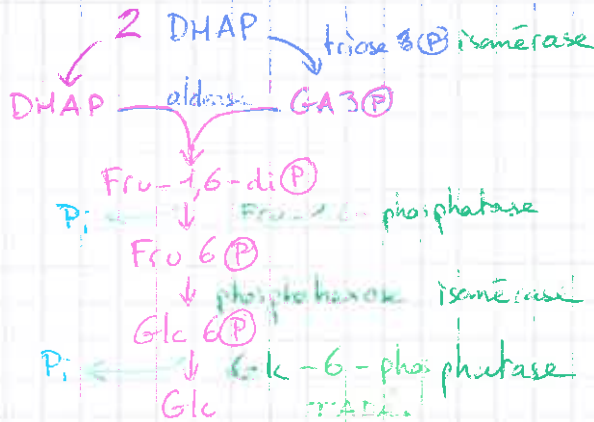 2 DHAP triose 3 P isomérase
DHAP aldolase GA3 P
Fru-1,6-di P
Pi Fru-1,6- phosphatase
Fru 6 P
phosphohexose isomérase
Glc 6 P
Pi Glc-6-phosphatase
Glc